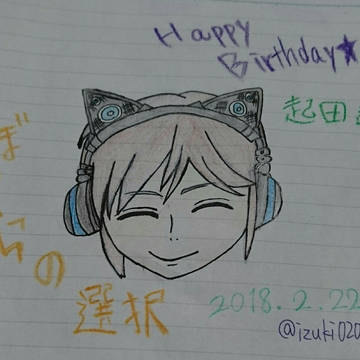 Happy
Birthday★
起田
ぼ
らの
選択
2018.2.22
@izuki020